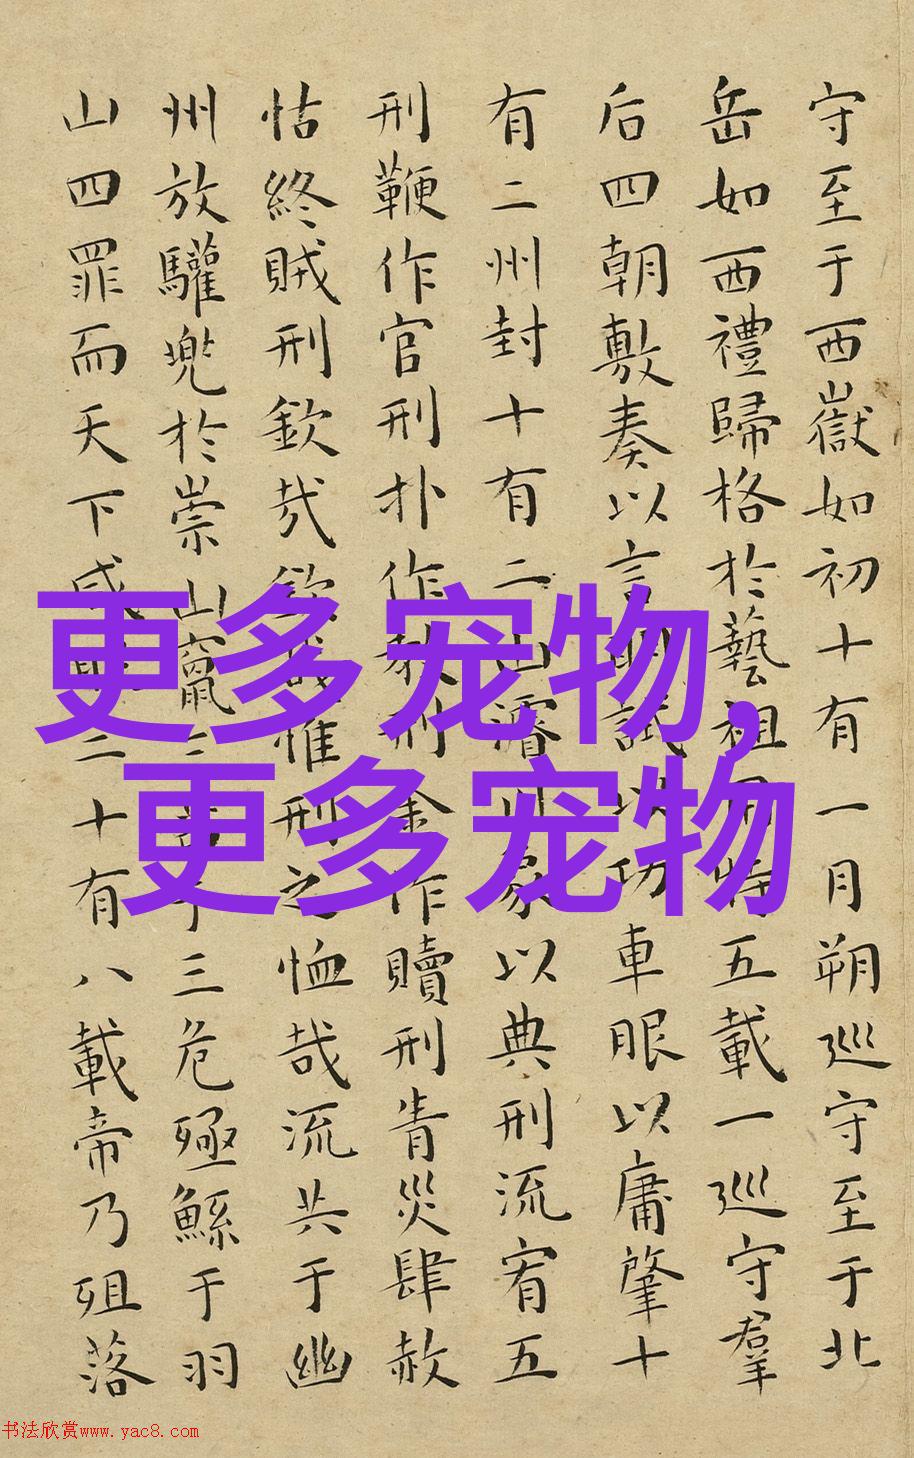 守至于西嶽如初十有一月朔巡守至于北
岳如西禮歸格於藝祖用特五載一巡守羣
后四朝敷奏以言明試以功車眼以庸肇十
有二州封十有二山濬川象以典刑流宥五
刑鞭作官刑扑作教刑金作贖刑眚災肆赦
怙終賊刑欽哉欽哉惟刑之恤哉流共于幽
州放驩兜於崇山竄三苗于三危殛鯀于羽
山四罪而天下咸服二十有八載帝乃殂落
更多宠物,
更多宠物
书法欣赏www.yac8.com